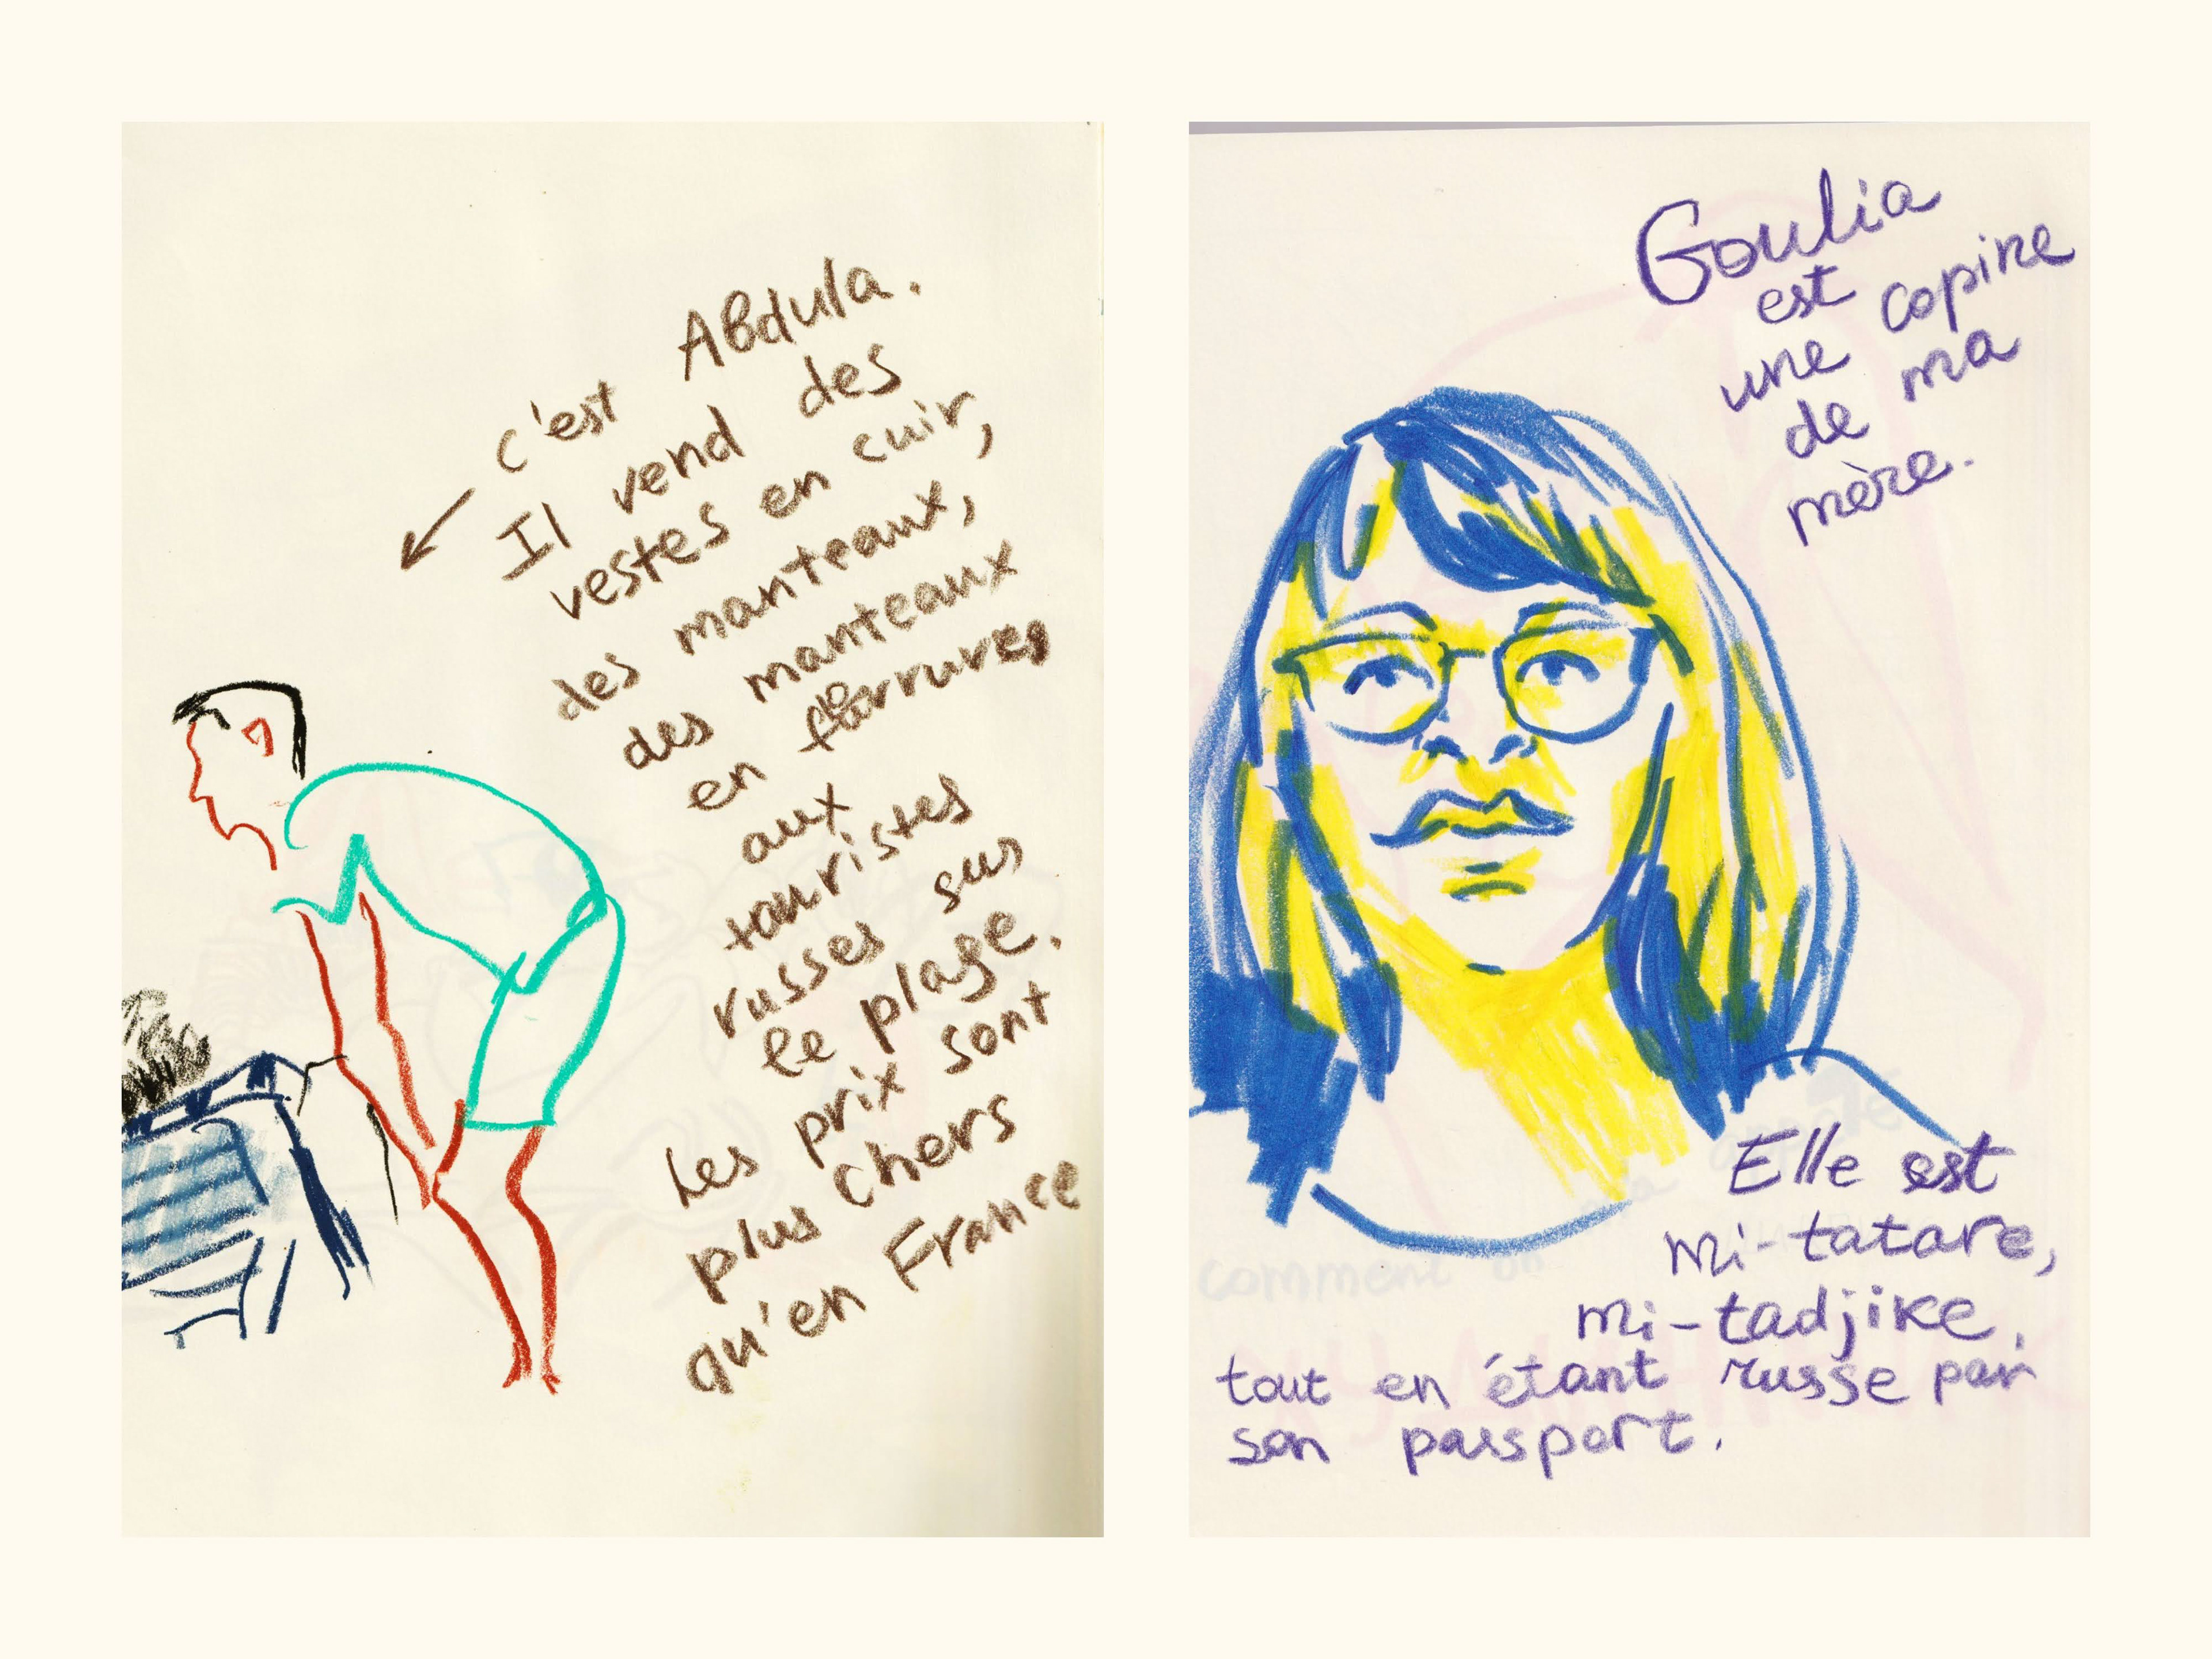 c'est Abdula.
Il vend des
vestes en cuir,
des manteaux,
des manteaux
en ferrures
aux
touristes
russes sus
le plage.
Les prix sont
plus chers
qu'en France
Goulia
est
une copine
de ma
mère.
Elle est
mi-tatare,
mi-tadjike,
tout en étant russe par
son passport.
comment on